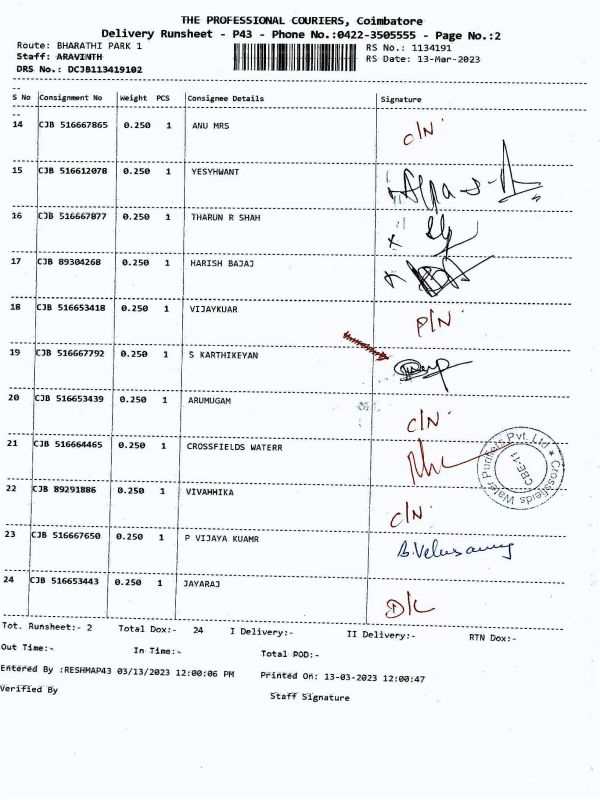 THE PROFESSIONAL COURIERS, Coimbatore
Delivery Runsheet - P43 - Phone No.:0422-3505555 - Page No.:2
Route: BHARATHI PARK 1 RS No.: 1134191
Staff: ARAVINTH RS Date: 13-Mar-2023
DRS No.: DCJB113419102
S No Consignment No Weight PCS Consignee Details Signature
14 CJB 516667865 0.250 1 ANU MRS C/N
15 CJB 516612078 0.250 1 YESYHWANT
16 CJB 516667877 0.250 1 THARUN R SHAH
17 CJB 89304268 0.250 1 HARISH BAJAJ
18 CJB 516653418 0.250 1 VIJAYKUAR P/N
19 CJB 516667792 0.250 1 S KARTHIKEYAN
20 CJB 516653439 0.250 1 ARUMUGAM C/N
21 CJB 516664465 0.250 1 CROSSFIELDS WATERR
Crossfields Water Purifiers Pvt. Ltd
CBE-11
22 CJB 89291886 0.250 1 VIVAHHIKA C/N
23 CJB 516667650 0.250 1 P VIJAYA KUAMR B.Velusamy
24 CJB 516653443 0.250 1 JAYARAJ D/L
Tot. Runsheet:- 2 Total Dox:- 24 I Delivery:- II Delivery:- RTN Dox:-
Out Time:- In Time:- Total POD:-
Entered By :RESHMAP43 03/13/2023 12:00:06 PM Printed On: 13-03-2023 12:00:47
Verified By Staff Signature